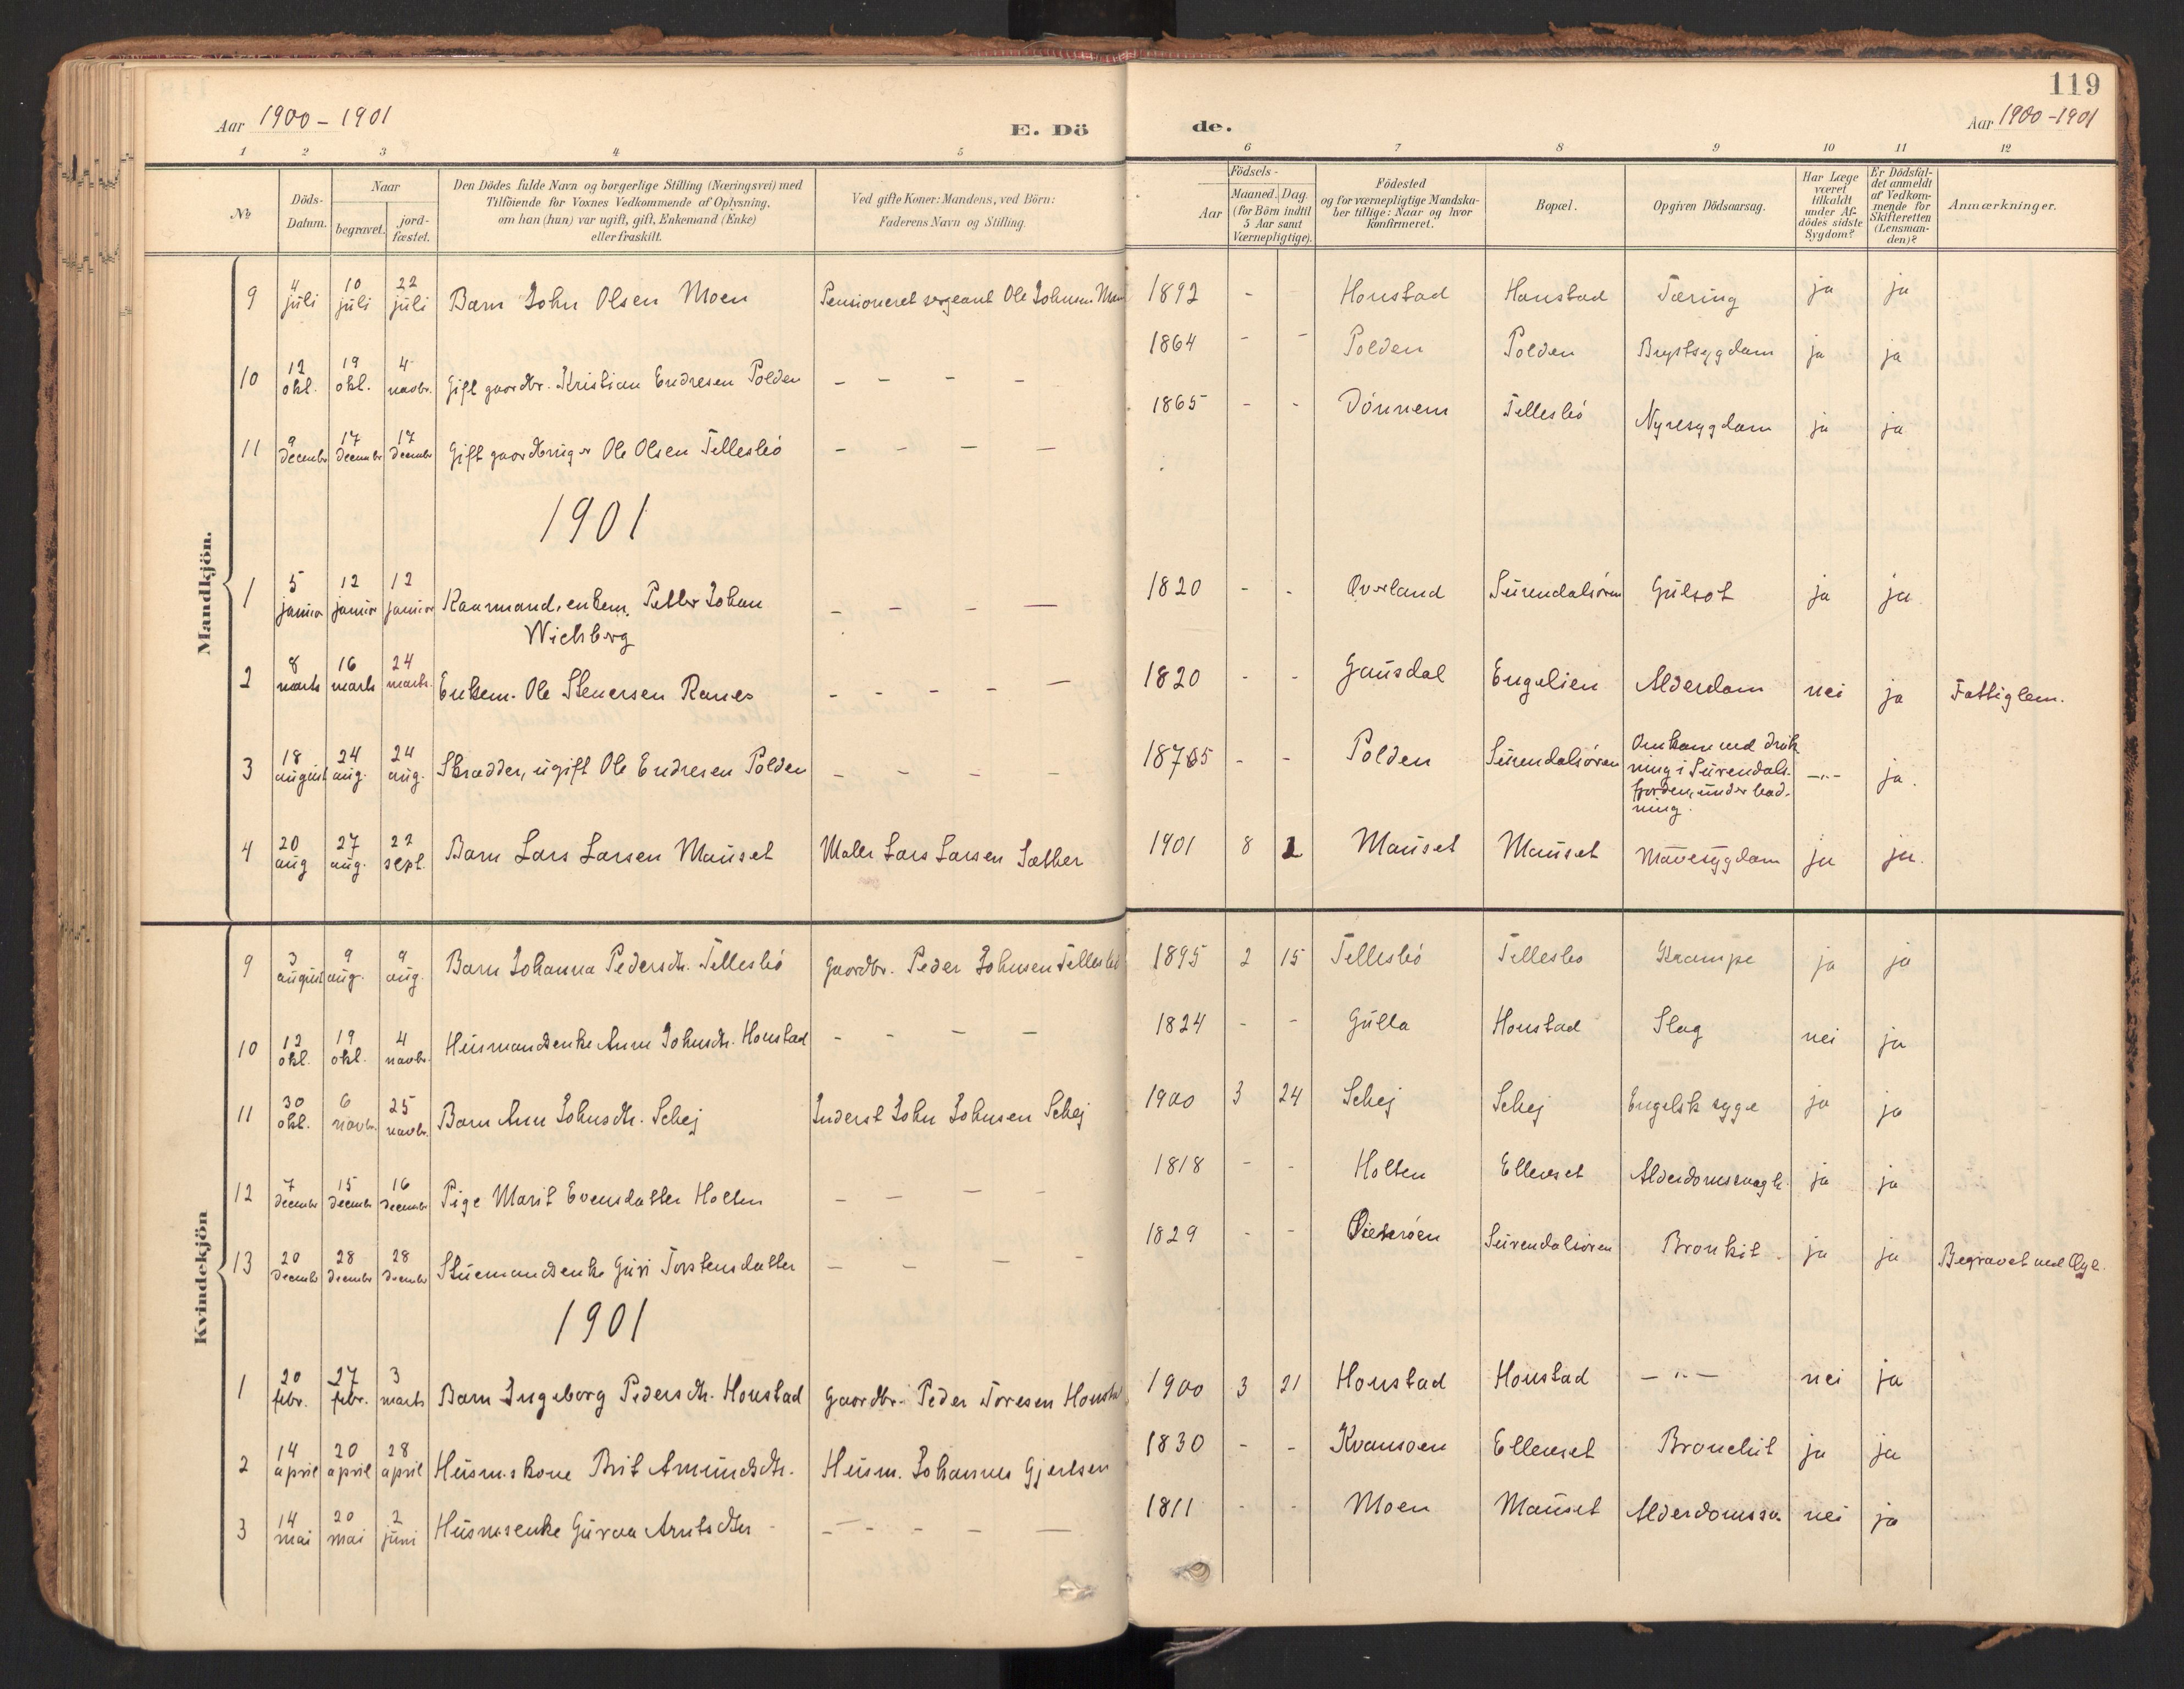 119
Aar 1900-1901 E. Dö de. Aar 1900-1901
1 2 3 4 5 6 7 8 9 10 11 12
№ Döds-Datum. Naar begravet. jord-fæstet. Den Dödes fulde Navn og borgerlige Stilling (Næringsvei) med Tilföiende for Voxnes Vedkommende af Oplysning, om han (hun) var ugift, gift, Enkemand (Enke) eller fraskilt. Ved gifte Koner: Mandens, ved Börn: Faderens Navn og Stilling. Födsels- Aar Maaned. Dag. (for Börn indtil 5 Aar samt Værnepligtige). Födested og for værnepligtige Mandskaber tillige: Naar og hvor Konfirmeret. Bopæl. Opgiven Dödsaarsag. Har Læge været tilkaldt under Afdödes sidste Sygdom? Er Dödsfaldet anmeldt af Vedkommende for Skifteretten (Lensmanden)? Anmærkninger.
Mandkjön.
9 4 juli 10 juli 22 juli Barn John Olsen Moen Pensioneret sergeant Ole Johnsen Moen 1892 - Honstad Honstad Tæring ja ja
10 12 okt. 19 okt. 4 novbr. Gift gaardbr. Kristian Endresen Polden - - - - 1864 - - Polden Polden Brystsygdom ja ja
11 9 decembr 17 decembr 17 decembr Gift gaardbruger Ole Olsen Tellesbö - - - - 1865 - - Dönnem Tellesbö Nyresygdom ja ja
1901
1 5 januar 12 januar 12 januar Kaarmand, enkem. Petter Johan Wichberg - - - - 1820 - - Överland Surendalsören Gulsot ja ja
2 8 marts 16 marts 24 marts. Enkem. Ole Stenersen Ranes - - - - - 1820 - - Gausdal Engelien Alderdom nei ja Fattiglem.
3 18 august 24 aug. 24 aug. Skrædder, ugift Ole Endresen Polden - - - - 18765 - - Polden Surendalsören Omkom ved drukning i Surendalsfjorden, under badning. -"- ja.
4 20 aug 27 aug. 22 sept. Barn Lars Larsen Mauset Maler Lars Larsen Sæther 1901 8 1 Mauset Mauset Mavesygdom ja ja.
Kvindekjön
9 3 august 9 aug. 9 aug. Barn Johanna Pedersdtr. Tellesbö Gaardbr. Peder Johnsen Tellesbö 1895 2 15 Tellesbö Tellesbö Krampe ja ja
10 12 okt. 19 okt. 4 novbr. Husmandsenke Anne Johnsdtr. Honstad - - - - 1824 - - Gulla Honstad Slag nei ja
11 30 okt. 6 novbr. 25 novbr. Barn Ane Johnsdtr. Schej Inderst John Johnsen Schej 1900 3 24 Schej Schej Engelsk syge ja ja
12 7 decembr 15 decembr 16 decembr Pige Marit Evensdatter Holten - - - - 1818 - - Holten Ellevset Alderdomssvagh. ja ja
13 20 decembr 28 decembr 28 decembr Stuemandsenke Guri Torstensdatter - - - - 1829 - - Surendalsören Bronkit. ja ja Begravet ved Öye.
1901
1 20 febr. 27 febr. 3 marts Barn Ingeborg Pedersdtr. Honstad Gaardbr. Peder Toresen Honstad 1900 3 21 Honstad Honstad -"- nei ja
2 14 april 20 april 28 april Husm.skone Brit Amundsdtr. Husm. Johannes Gjertsen 1830 - - Kvamsoen Ellevset Bronchit ja ja
3 14 mai 20 mai 2 juni Husmsenke Guroa Arntsdtr - - - - - 1811 - - Moen Mauset Alderdomssv. nei ja